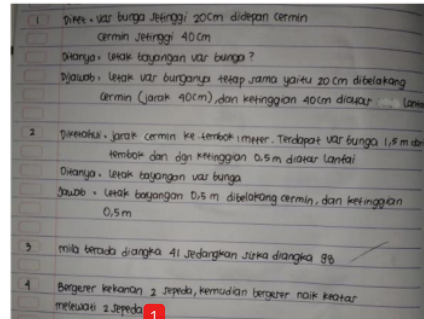 1 Diket : Var bunga setinggi 20cm didepan cermin
cermin setinggi 40cm
Ditanya : letak bayangan var bunga?
Dijawab : letak var bunganya tetap sama yaitu 20 cm dibelakang
cermin (jarak 40cm), dan ketinggian 40cm diatas lantai
2 Diketahui : jarak cermin ke tembok 1 meter. Terdapat var bunga 1,5 m dari
tembok dan dgn ketinggian 0,5m diatas lantai
Ditanya : letak bayangan var bunga
Jawab : letak bayangan 0,5 m dibelakang cermin, dan ketinggian
0,5m
3 mila berada diangka 41 sedangkan siska diangka 98
4 Bergeser kekanan 2 sepeda, kemudian bergeser naik keatas
melewati 2 sepeda 1